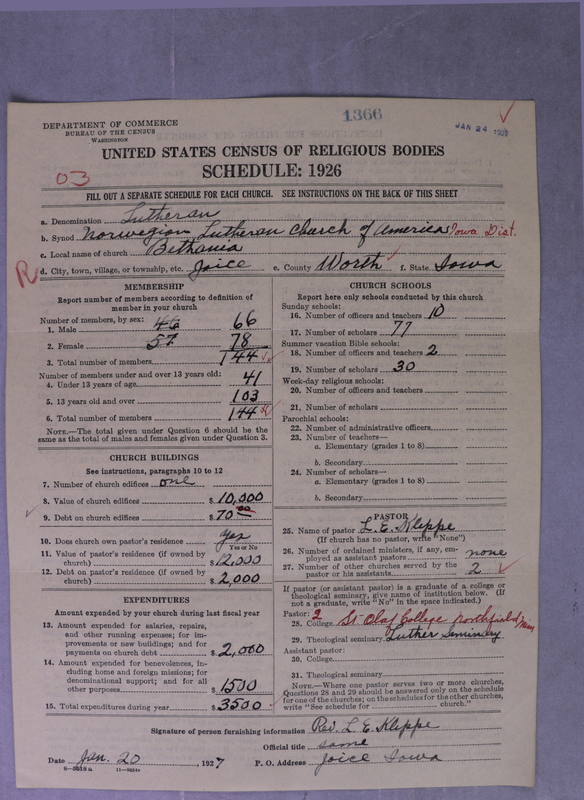 1366
JAN 24 1927
DEPARTMENT OF COMMERCE
BUREAU OF THE CENSUS
WASHINGTON
UNITED STATES CENSUS OF RELIGIOUS BODIES
SCHEDULE: 1926
03
FILL OUT A SEPARATE SCHEDULE FOR EACH CHURCH. SEE INSTRUCTIONS ON THE BACK OF THIS SHEET
a. Denomination Lutheran
b. Synod Norwegian Lutheran Church of America Iowa Dist.
c. Local name of church Bethania
R
d. City, town, village, or township, etc. Joice e. County Worth f. State Iowa
MEMBERSHIP
Report number of members according to definition of
member in your church
Number of members, by sex:
1. Male 46 66
2. Female 57 78
3. Total number of members 144
Number of members under and over 13 years old:
4. Under 13 years of age 41
5. 13 years old and over 103
6. Total number of members 144
NOTE.—The total given under Question 6 should be the
same as the total of males and females given under Question 3.
CHURCH BUILDINGS
See instructions, paragraphs 10 to 12
7. Number of church edifices one
8. Value of church edifices $ 10,000
9. Debt on church edifices $ 70 00
10. Does church own pastor's residence yes
Yes or No
11. Value of pastor's residence (if owned by
church) $ 12,000
12. Debt on pastor's residence (if owned by
church) $ 2,000
EXPENDITURES
Amount expended by your church during last fiscal year
13. Amount expended for salaries, repairs,
and other running expenses; for im-
provements or new buildings; and for
payments on church debt $ 2,000
14. Amount expended for benevolences, in-
cluding home and foreign missions; for
denominational support; and for all
other purposes $ 1500
15. Total expenditures during year $ 3500
CHURCH SCHOOLS
Report here only schools conducted by this church
Sunday schools:
16. Number of officers and teachers 10
17. Number of scholars 77
Summer vacation Bible schools:
18. Number of officers and teachers 2
19. Number of scholars 30
Week-day religious schools:
20. Number of officers and teachers
21. Number of scholars
Parochial schools:
22. Number of administrative officers
23. Number of teachers—
a. Elementary (grades 1 to 8)
b. Secondary
24. Number of scholars—
a. Elementary (grades 1 to 8)
b. Secondary
PASTOR
25. Name of pastor L. E. Kleppe
(If church has no pastor, write "None")
26. Number of ordained ministers, if any, em-
ployed as assistant pastors none
27. Number of other churches served by the
pastor or his assistants 2
If pastor (or assistant pastor) is a graduate of a college or
theological seminary, give name of institution below. (If
not a graduate, write "No" in the space indicated.)
Pastor: 2
28. College St Olaf College Northfield Minn
29. Theological seminary Luther Seminary
Assistant pastor:
30. College
31. Theological seminary
NOTE.—Where one pastor serves two or more churches,
Questions 28 and 29 should be answered only on the schedule
for one of the churches; on the schedules for the other churches,
write "See schedule for church."
Signature of person furnishing information Rev. L. E. Kleppe
Official title same
Date Jan. 20, 1927 P. O. Address Joice Iowa